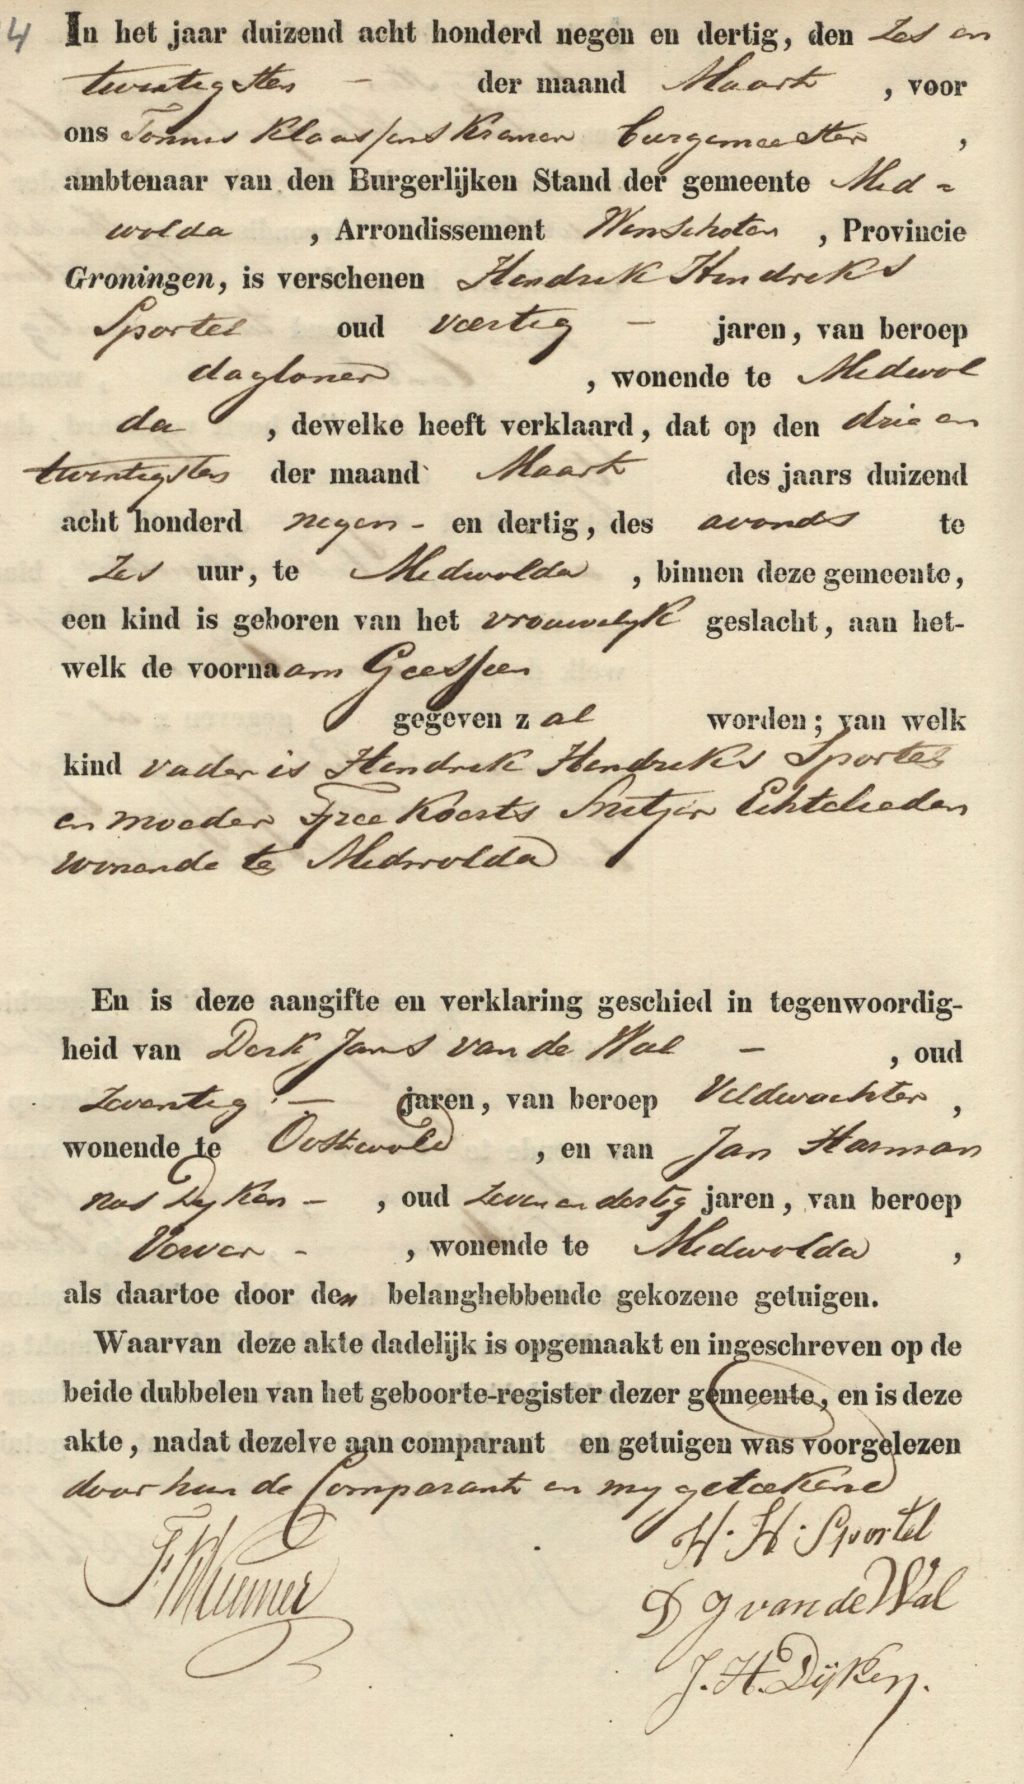 4 In het jaar duizend acht honderd negen en dertig, den Zes en
twintigsten - der maand Maart , voor
ons Tonnis Klaassens Kremer burgemeester ,
ambtenaar van den Burgerlijken Stand der gemeente Mid-
wolda , Arrondissement Winschoten , Provincie
Groningen, is verschenen Hendrik Hendriks
Sportel oud veertig - jaren, van beroep
dagloner , wonende te Midwol
da , dewelke heeft verklaard, dat op den drie en
twintigsten der maand Maart des jaars duizend
acht honderd negen - en dertig, des avonds te
Zes uur, te Midwolda , binnen deze gemeente,
een kind is geboren van het vrouwelyk geslacht, aan het-
welk de voornaam Geessien
gegeven zal worden; van welk
kind vader is Hendrik Hendriks Sportel
en moeder Koerts Echtelieden
wonende te Midwolda
En is deze aangifte en verklaring geschied in tegenwoordig-
heid van Derk Jans van de Wal - , oud
Zeventig - jaren, van beroep Veldwachter ,
wonende te Oostwold , en van Jan Harman
nus Dyken - , oud Zeven en dertig jaren, van beroep
Verver - , wonende te Midwolda ,
als daartoe door den belanghebbende gekozene getuigen.
Waarvan deze akte dadelijk is opgemaakt en ingeschreven op de
beide dubbelen van het geboorte-register dezer gemeente, en is deze
akte, nadat dezelve aan comparant en getuigen was voorgelezen
door hun de Comparant en my getekend
H. H. Sportel
D J van de Wal
J. H. Dijken.